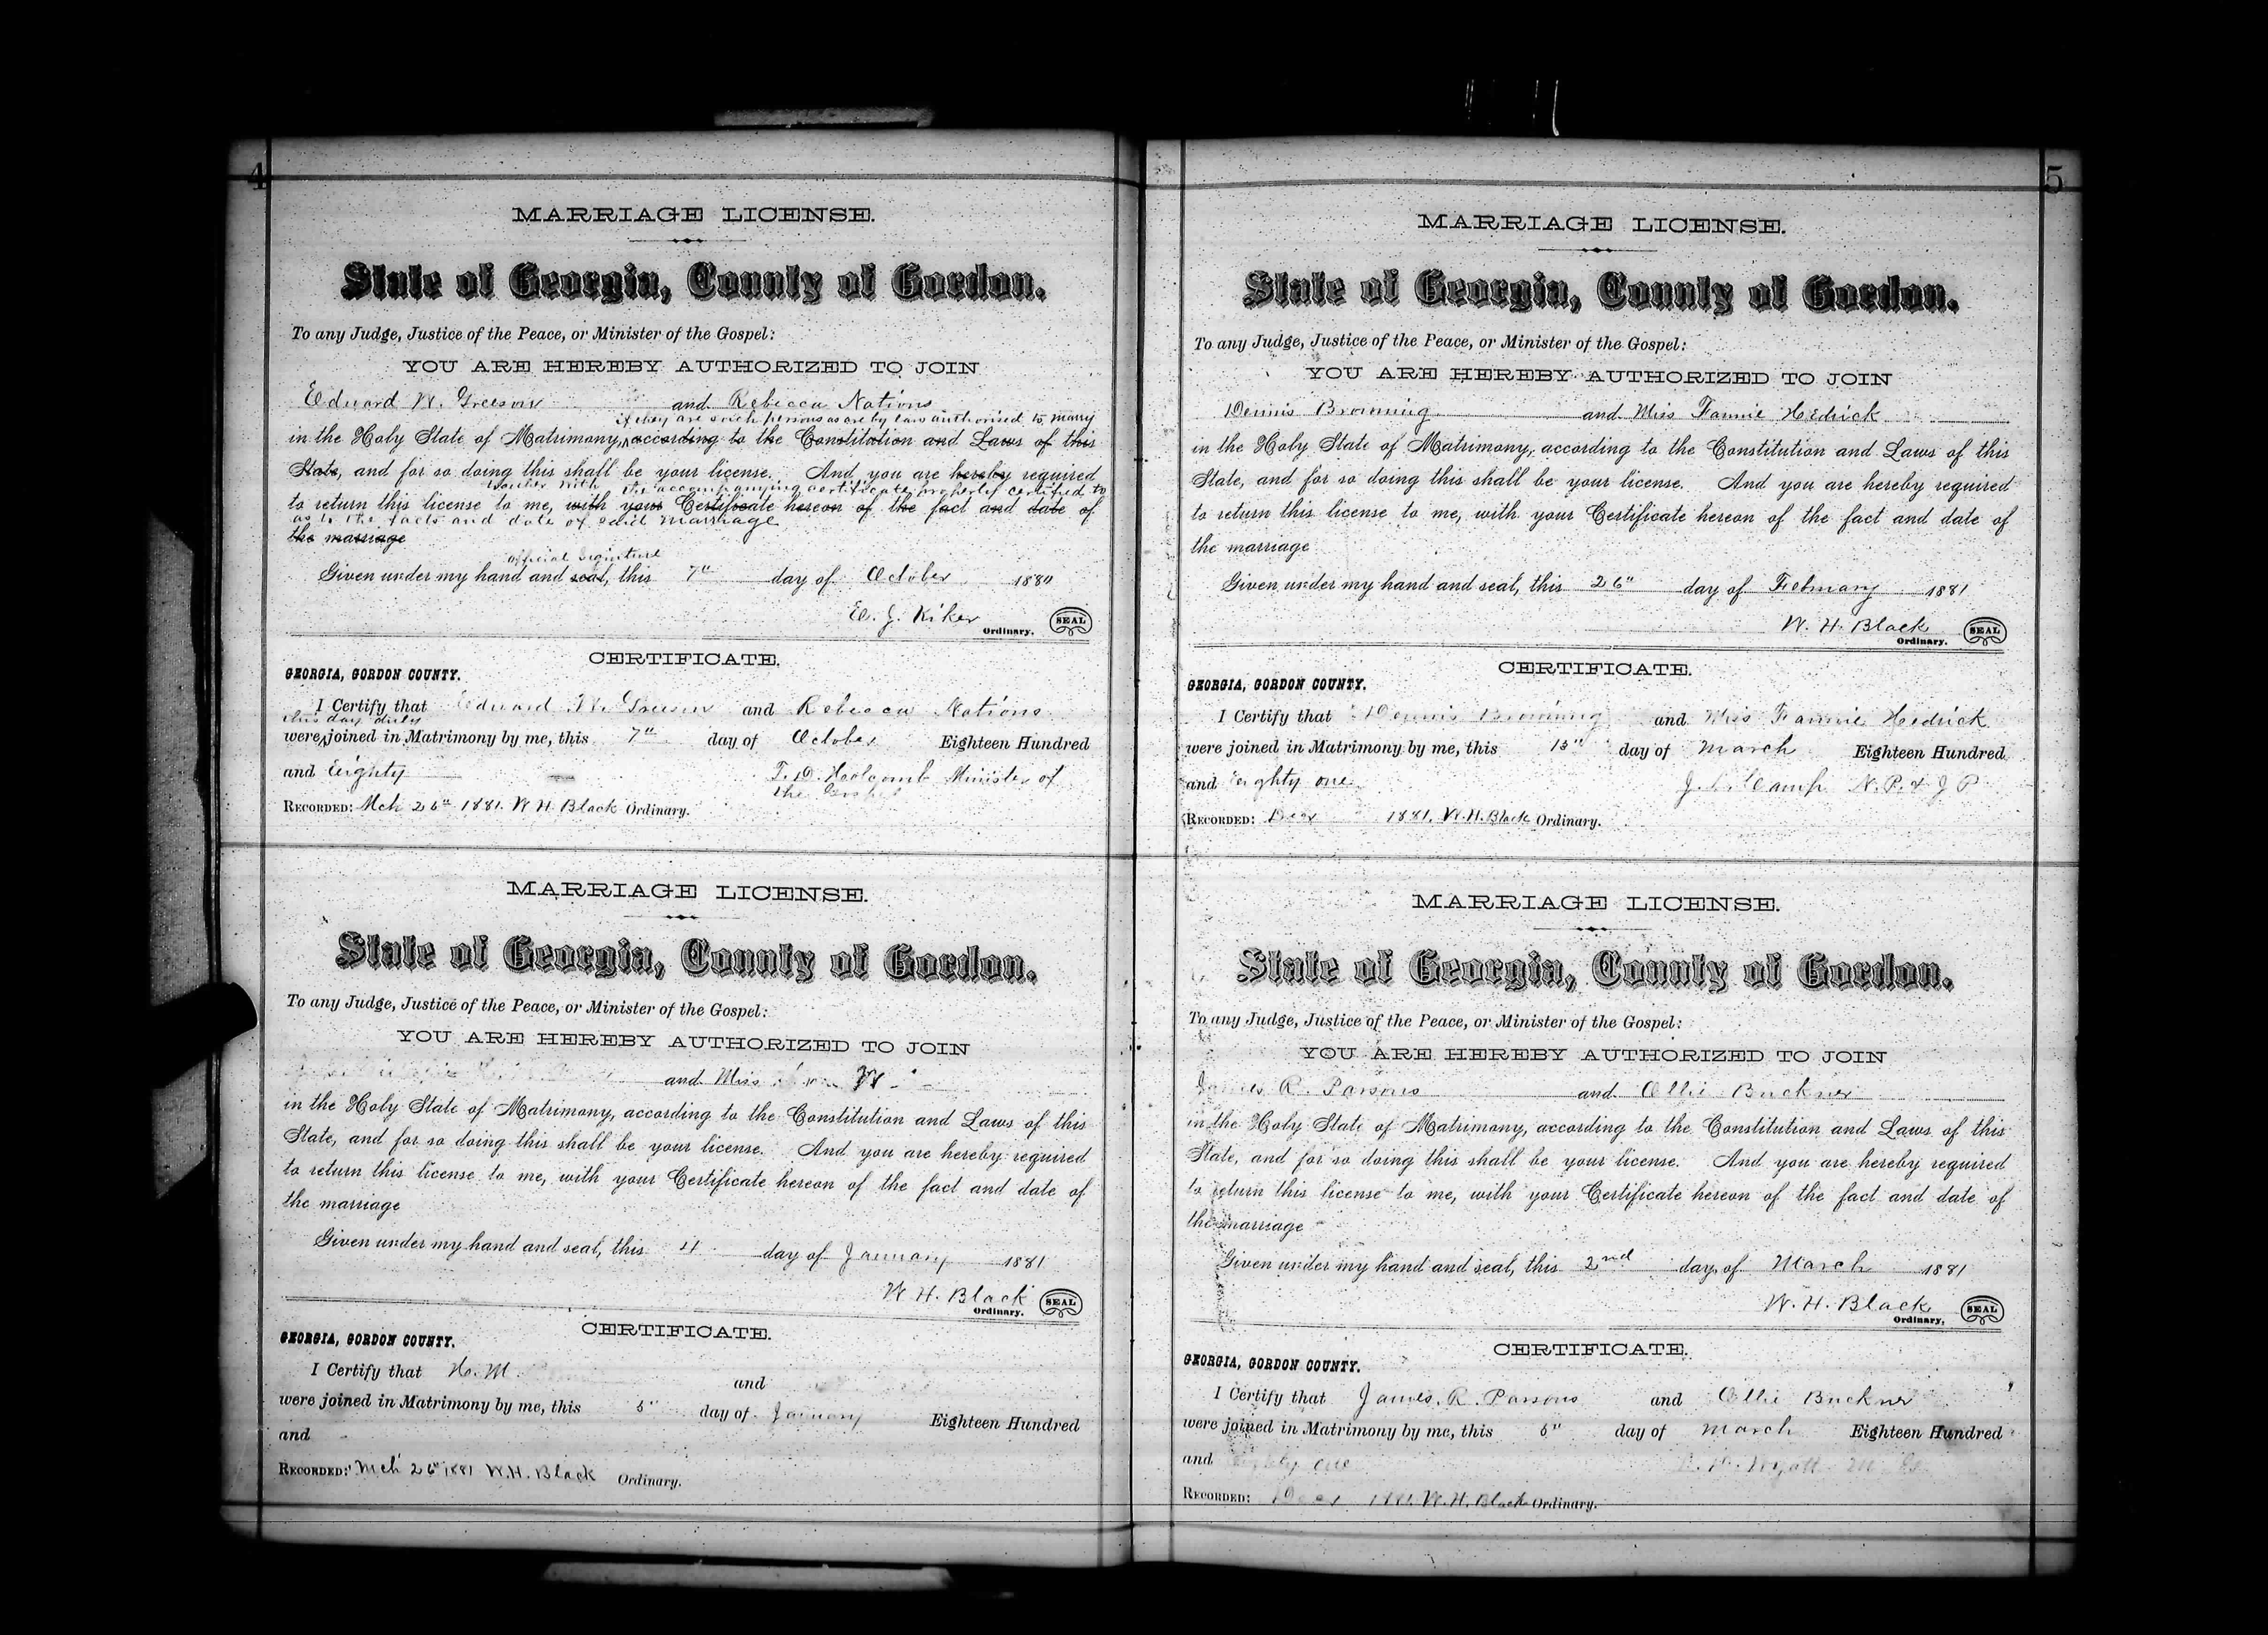 4
MARRIAGE LICENSE.
State of Georgia, County of Gordon.
To any Judge, Justice of the Peace, or Minister of the Gospel:
YOU ARE HEREBY AUTHORIZED TO JOIN
Edward W. Greeson and Rebecca Nations
if they are such persons as are by law authorised to marry
in the Holy State of Matrimony, according to the Constitution and Laws of this
State, and for so doing this shall be your license. And you are hereby required
together with the accompanying certificate properly certified to
to return this license to me, with your Certificate hereon of the fact and date of
as to the facts and date of said marriage
the marriage
official signature
Given under my hand and seal, this 7th day of October 1880
E. J. Kiker
Ordinary. SEAL
CERTIFICATE.
GEORGIA, GORDON COUNTY.
I Certify that Edward W. Greeson and Rebecca Nations
this day duly
were joined in Matrimony by me, this 7th day of October Eighteen Hundred
and Eighty T. D. Holcomb Minister of
the Gospel
RECORDED: Mch 26th 1881. W H. Black Ordinary.
MARRIAGE LICENSE.
State of Georgia, County of Gordon.
To any Judge, Justice of the Peace, or Minister of the Gospel:
YOU ARE HEREBY AUTHORIZED TO JOIN
and Miss
in the Holy State of Matrimony, according to the Constitution and Laws of this
State, and for so doing this shall be your license. And you are hereby required
to return this license to me, with your Certificate hereon of the fact and date of
the marriage
Given under my hand and seal, this 4 day of January 1881
W H. Black
Ordinary. SEAL
CERTIFICATE.
GEORGIA, GORDON COUNTY.
I Certify that H. M. and
were joined in Matrimony by me, this day of January Eighteen Hundred
and
RECORDED: Mch 26th 1881 W.H. Black Ordinary.
5
MARRIAGE LICENSE.
State of Georgia, County of Gordon.
To any Judge, Justice of the Peace, or Minister of the Gospel:
YOU ARE HEREBY AUTHORIZED TO JOIN
Dennis Browning and Miss Fannie Hedrick
in the Holy State of Matrimony, according to the Constitution and Laws of this
State, and for so doing this shall be your license. And you are hereby required
to return this license to me, with your Certificate hereon of the fact and date of
the marriage
Given under my hand and seal, this 26th day of February 1881
W. H. Black
Ordinary. SEAL
CERTIFICATE.
GEORGIA, GORDON COUNTY.
I Certify that Dennis Browning and Miss Fannie Hedrick
were joined in Matrimony by me, this day of March Eighteen Hundred
and Eighty one. Camp N. P. & J P
RECORDED: 1881. W.H. Black Ordinary.
MARRIAGE LICENSE.
State of Georgia, County of Gordon.
To any Judge, Justice of the Peace, or Minister of the Gospel:
YOU ARE HEREBY AUTHORIZED TO JOIN
James R. Parsons and Ollie Buckner
in the Holy State of Matrimony, according to the Constitution and Laws of this
State, and for so doing this shall be your license. And you are hereby required
to return this license to me, with your Certificate hereon of the fact and date of
the marriage
Given under my hand and seal, this 2nd day of March 1881
W. H. Black
Ordinary. SEAL
CERTIFICATE.
GEORGIA, GORDON COUNTY.
I Certify that James. R. Parsons and Ollie Buckner
were joined in Matrimony by me, this day of March Eighteen Hundred
and Eighty one Wyatt
RECORDED: 1881. W. H. Black Ordinary.